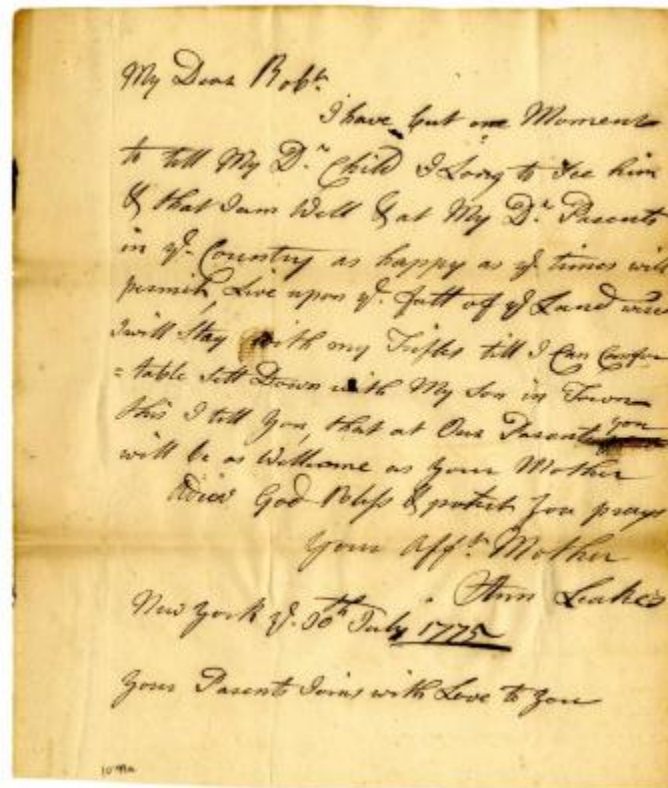 My Dear Robt.
I have but one Moment
to tell My Dr. Child I Long to See him
& that I am Well & at My Dr. Parents
in ye. Country as happy as ye. times will
permit, Live upon ye. fatt of ye Land
I will Stay with my Trifles till I Can Comfor
=table Sett Down with My Son in Town
this I tell You, that at Our Parents you
will be as Wellcome as Your Mother
Adieu God Bless & protect You prays
Your Afft. Mother
Ann Leake
New York ye. 30th July 1775
Your Parents Joins with Love to You